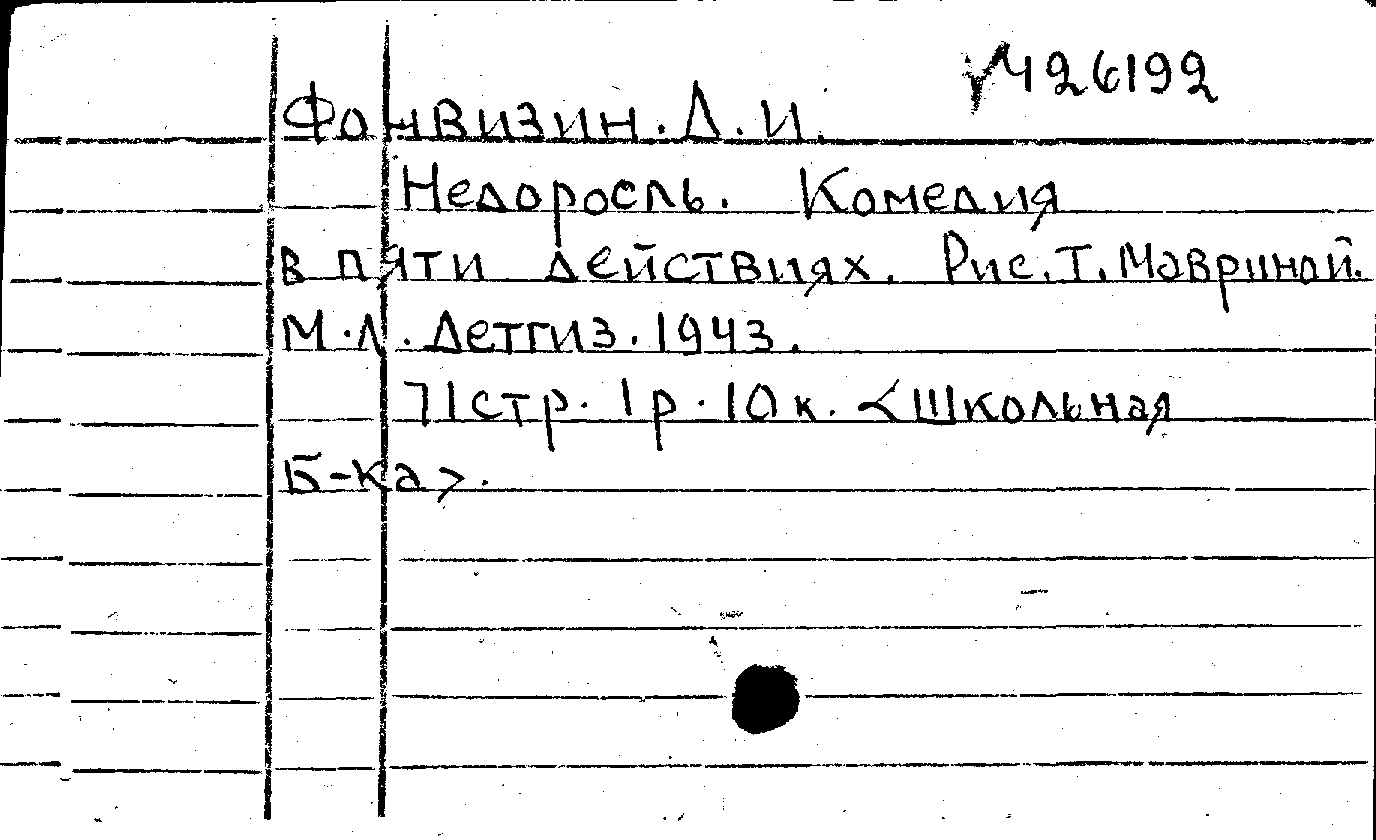 √426192
Фонвизин. Д. И.
Недоросль. Комедия
в пяти действиях. Рис. Т. Мавриной.
М.Л. Детгиз. 1943.
71 стр. 1 р. 10 к. <Школьная
Б-ка>.